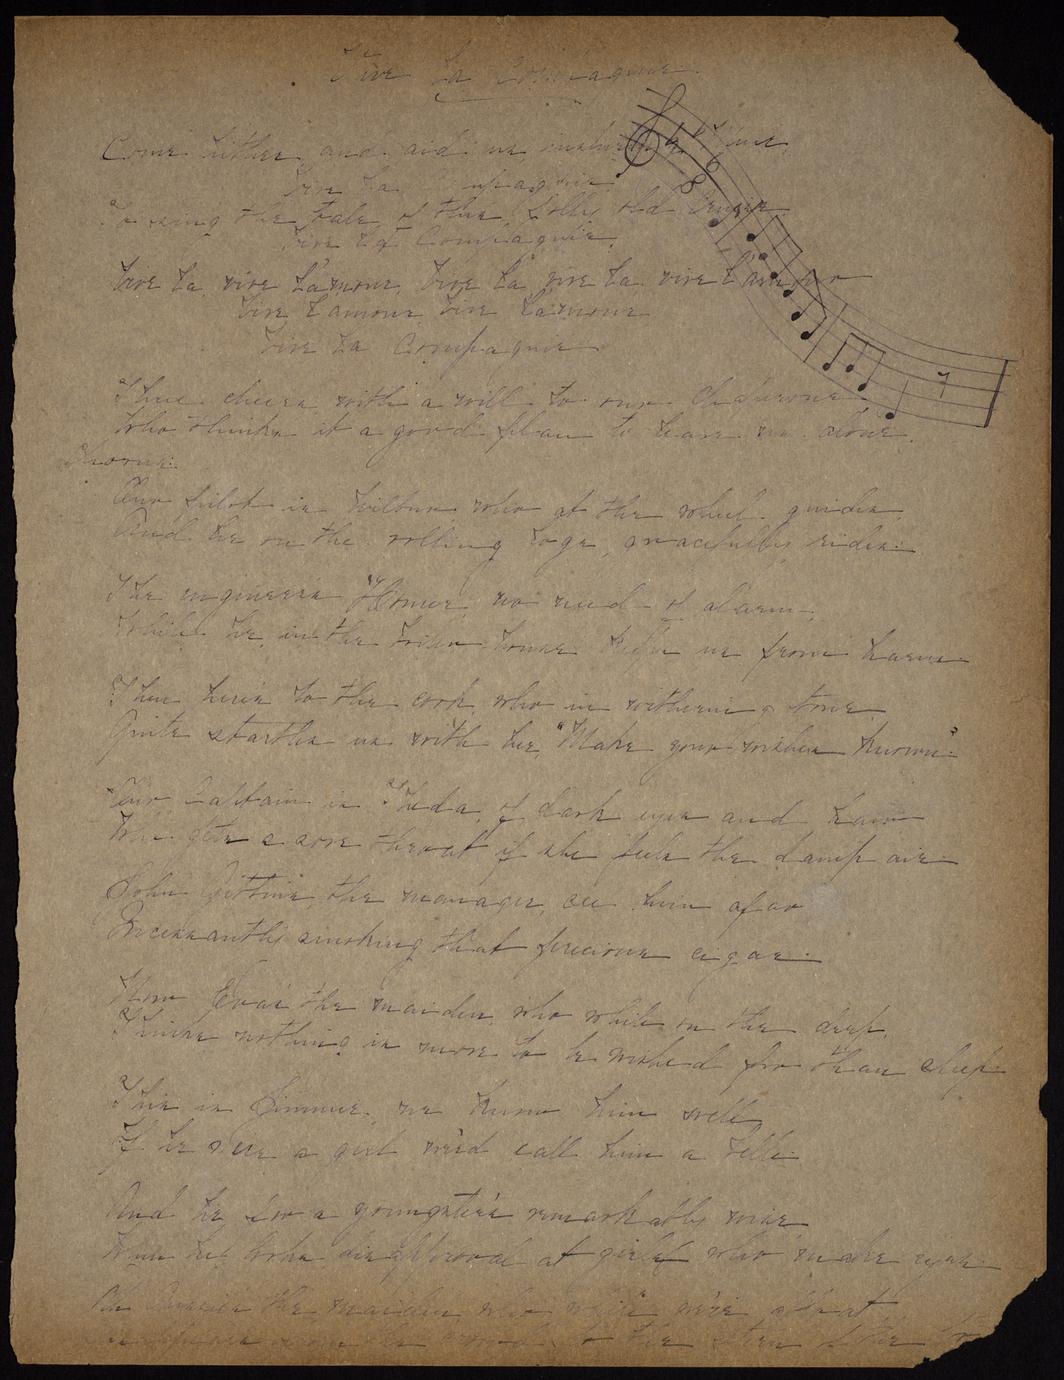 Vive La Compagnie
Come hither and aid us, in time,
Vive La Compagnie
To sing the tale of this Jolly old
Vive La Compagnie.
Vive La, vive L'amour, Vive La, vive La vive L'amour
Vive L'amour, Vive L'amour
Vive La Compagnie
Three cheers with a will to our Chaperone
Who thinks it a good plan to leave us alone.
Chorus.
Our pilot is Wilbur who at the wheel guides
And he on the rolling loge gracefully rides.
The engineer's Homer, no need of alarm.
While he, in the boiler house keeps us from harm
Then here's to the cook who in withering tone
Quite startles us with her, "Make your wishes known".
Our Captain is Theda, of dark eyes and hair
Who gets a sore throat if she feels the damp air
John Gittins, the manager, see him afar
Incessantly smoking that precious cigar.
Now Eva's the maiden who while on the deep,
Thinks nothing is more to be wished for than sleep.
This is Jimmie we know him well
If he were a girl we'd call him a belle.
And he, for a youngster's remarkably wise
disapproval at girls who make eyes.
the maiden who while we're afloat
the stern of the